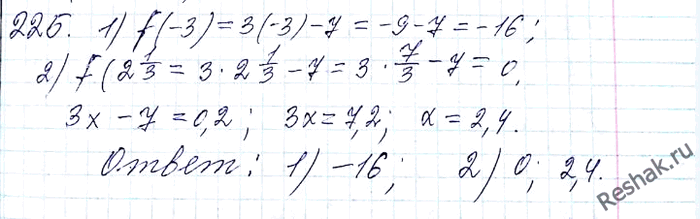 225. 1) f(-3) = 3(-3) - 7 = -9 - 7 = -16;
2) f(2 1/3 = 3 · 2 1/3 - 7 = 3 · 7/3 - 7 = 0,
3x - 7 = 0,2; 3x = 7,2; x = 2,4.
Ответ: 1) -16; 2) 0; 2,4.
Reshak.ru